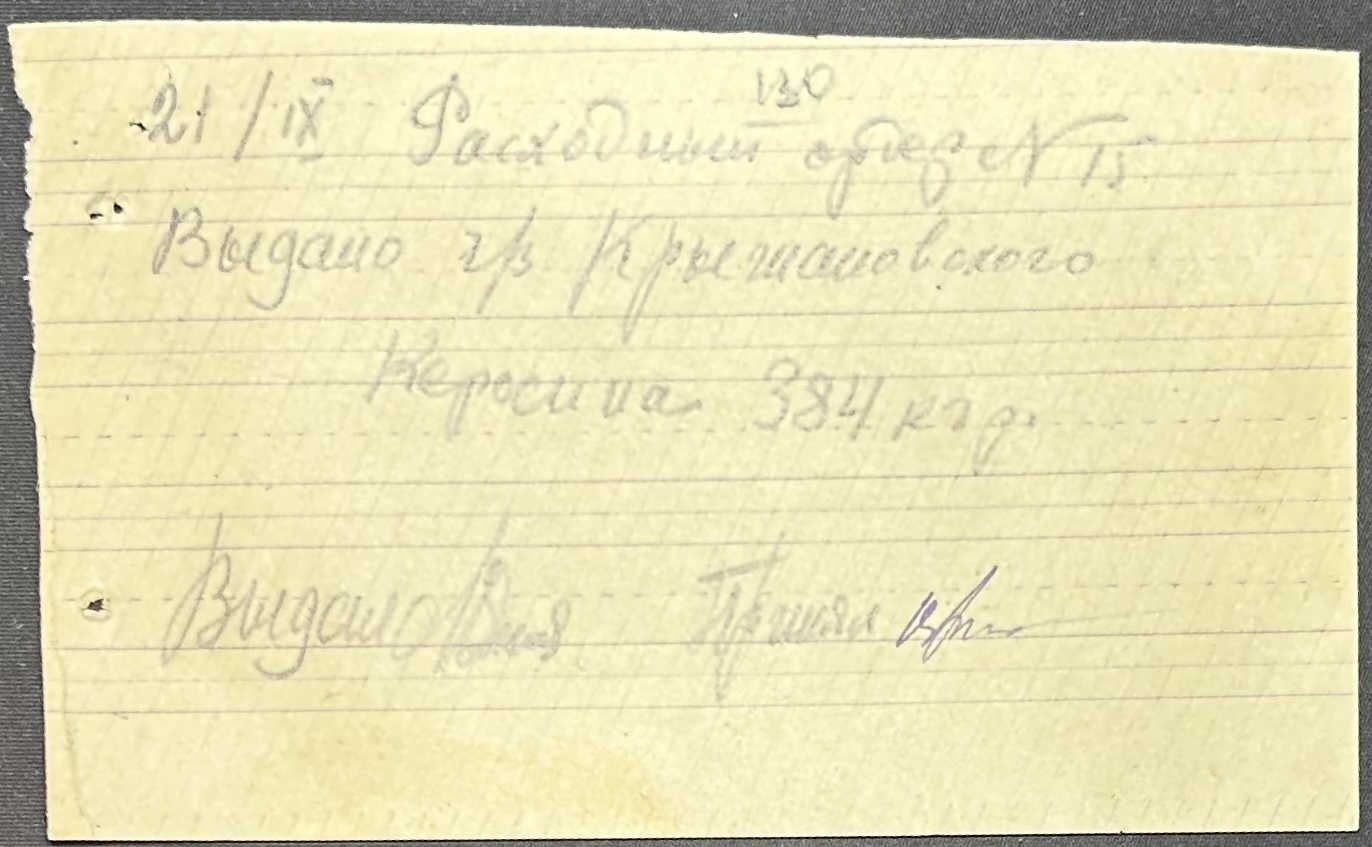 130
21/IX Расходный ордер № 15
Выдано гр Крыжановского
Керосина 384 кгр.
Выдал Принял